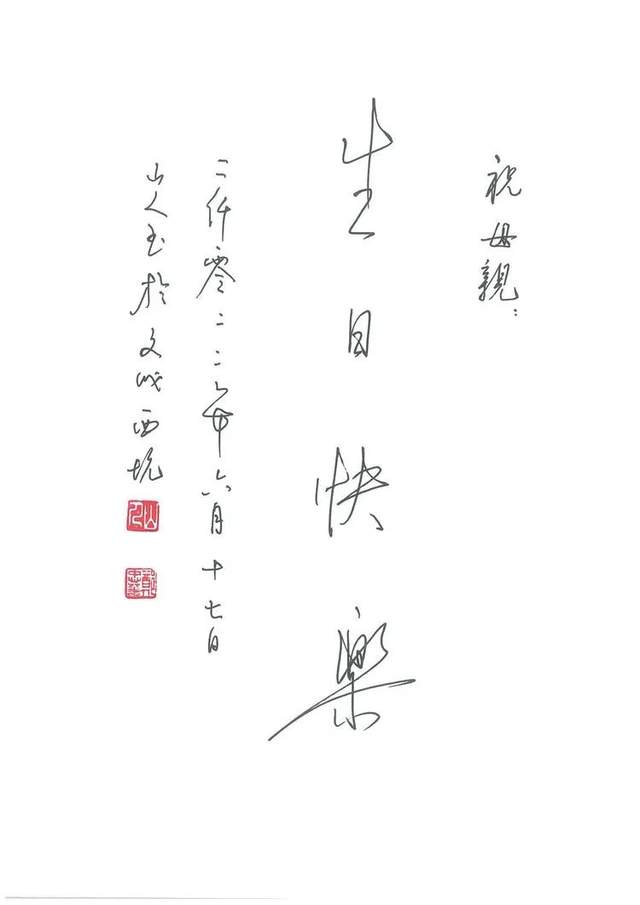 祝母親:
生日快樂
二仟零二二年六月十七日
山人書於文成西坑
山人